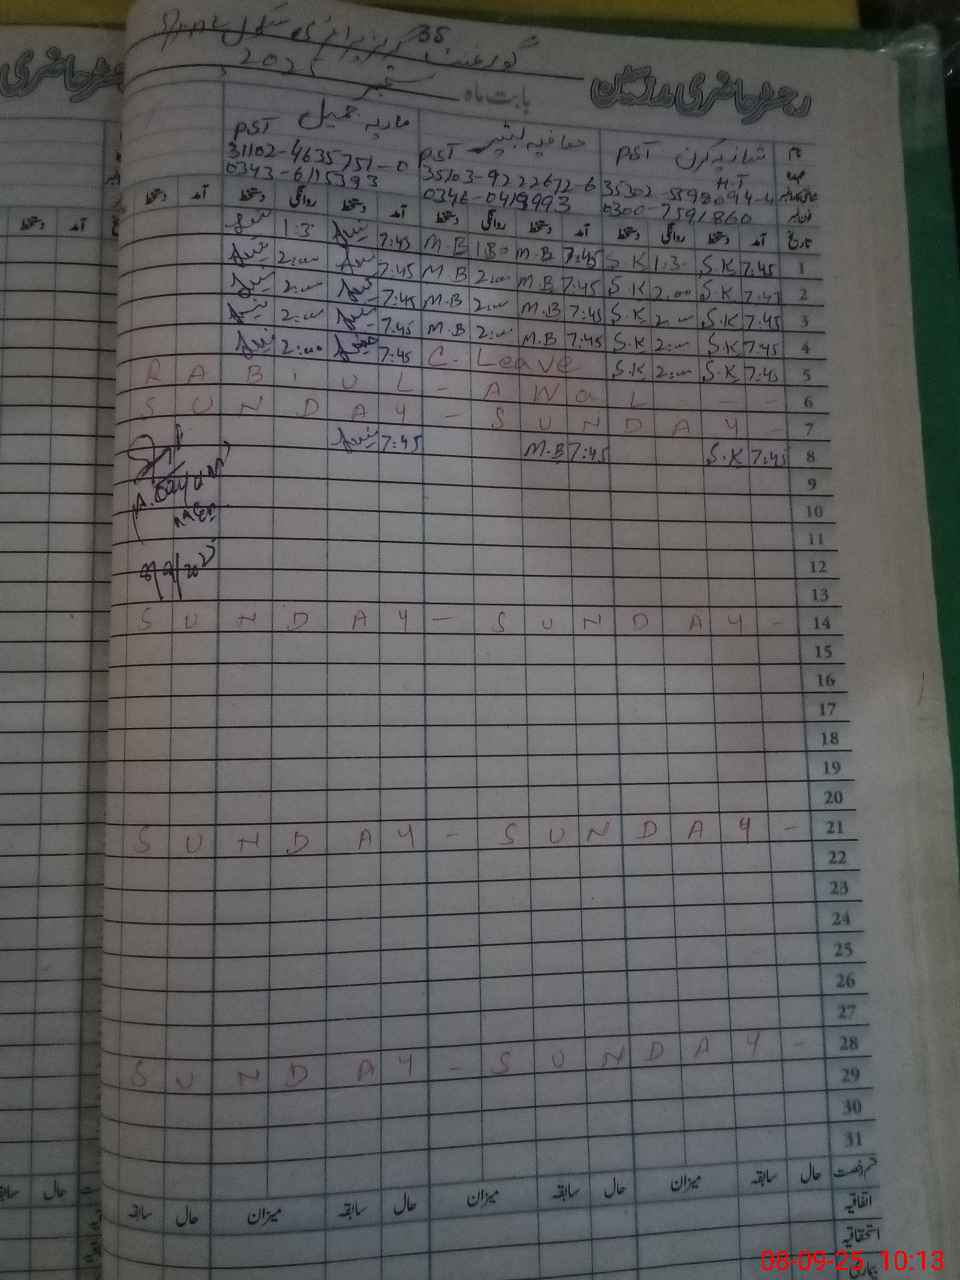 رجسٹر حاضری مدرسین
گورنمنٹ گرلز پرائمری سکول 35
بابت ماہ ستمبر 2025
نام شازیہ کرن PST صافیہ بشیر PST ماریہ جمیل PST
H.T
35302-5598094-4 35103-9222672-6 31102-4635751-0
0300-7591860 0346-0419993 0343-6115393
تاریخ آمد دستخط روانگی دستخط آمد دستخط روانگی دستخط آمد دستخط روانگی دستخط آمد دستخط
1 7:45 S.K 1:30 S.K 7:45 M.B 1:30 M.B 7:45 1:30
2 7:45 S.K 2:00 S.K 7:45 M.B 2:00 M.B 7:45 2:00
3 7:45 S.K 2:00 S.K 7:45 M.B 2:00 M.B 7:45 2:00
4 7:45 S.K 2:00 S.K 7:45 M.B 2:00 M.B 7:45 2:00
5 7:45 S.K 2:00 S.K C. Leave 7:45 2:00
RABI UL - AWAL - - - 6
SUNDAY - SUNDAY - 7
8 7:45 S.K 7:45 M.B 7:45
9
10
11
12
13
SUNDAY - SUNDAY - 14
15
16
17
18
19
20
SUNDAY - SUNDAY - 21
22
23
24
25
26
27
SUNDAY - SUNDAY - 28
29
30
31
قسم رخصت حال سابقہ میزان حال سابقہ میزان حال سابقہ میزان حال سابقہ
اتفاقیہ
استحقاقیہ
بیماری
08-09-25 10:13